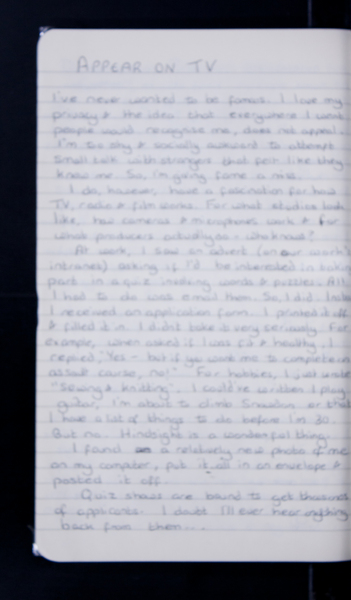 APPEAR ON TV
I've never wanted to be famous. I love my
privacy & the idea that everywhere I went
people would recognise me, does not appeal.
I'm too shy & socially awkward to attempt
small talk with strangers that feel like they
know me. So, I'm giving fame a miss.
I do, however, have a fascination for how
TV, radio & film works. For what studios look
like, how cameras & microphones work & for
what producers actually do - who knows?
At work, I saw an advert (on our work's
intranet) asking if I'd be interested in taking
part in a quiz involving words & puzzles. All
I had to do was email them. So, I did.
I received an application form. I printed it off
& filled it in. I didn't take it very seriously. For
example, when asked if I was fit & healthy, I
replied, "Yes - but if you want me to complete an
assault course, no!" For hobbies, I just wrote
"Sewing & knitting". I could've written I play
guitar, I'm about to climb Snowdon or that
I have a lot of things to do before I'm 30.
But no. Hindsight is a wonderful thing.
I found a relatively new photo of me
on my computer, put it all in an envelope &
posted it off.
Quiz shows are bound to get thousands
of applicants. I doubt I'll ever hear anything
back from them...